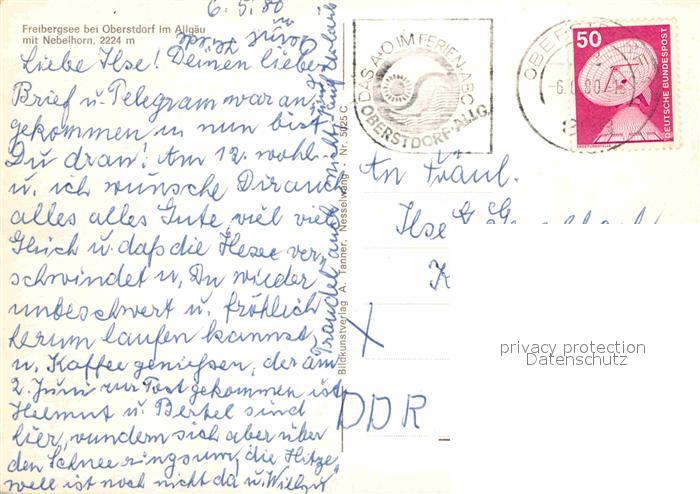 6.5.80
Freibergsee bei Oberstdorf im Allgäu
mit Nebelhorn, 2224 m
Liebe Ilse! Deinen lieben
Brief u. Telegram war an-
gekommen u nun bist
Du dran! Am 12. wohl
u. ich wünsche Dir auch
alles alles Gute, viel viel
Glück u. daß die Hexe ver-
schwindet u. Du wieder
unbeschwert u. fröhlich
herum laufen kannst
u. Kaffee genießen, der am
2. Juni zur Post gekommen ist
Helmut u. Bertel sind
hier, wundern sich aber über
den Schnee ringsum, die Hitze
well ist noch nicht da u.
Traudel auch nicht
Bildkunstverlag A. Tanner, Nesselwang · Nr. 5025 C
DAS A·O IM FERIEN-ABC
OBERSTDORF·ALLG.
50
DEUTSCHE BUNDESPOST
An Fräul.
Ilse
K
X
DDR
privacy protection
Datenschutz